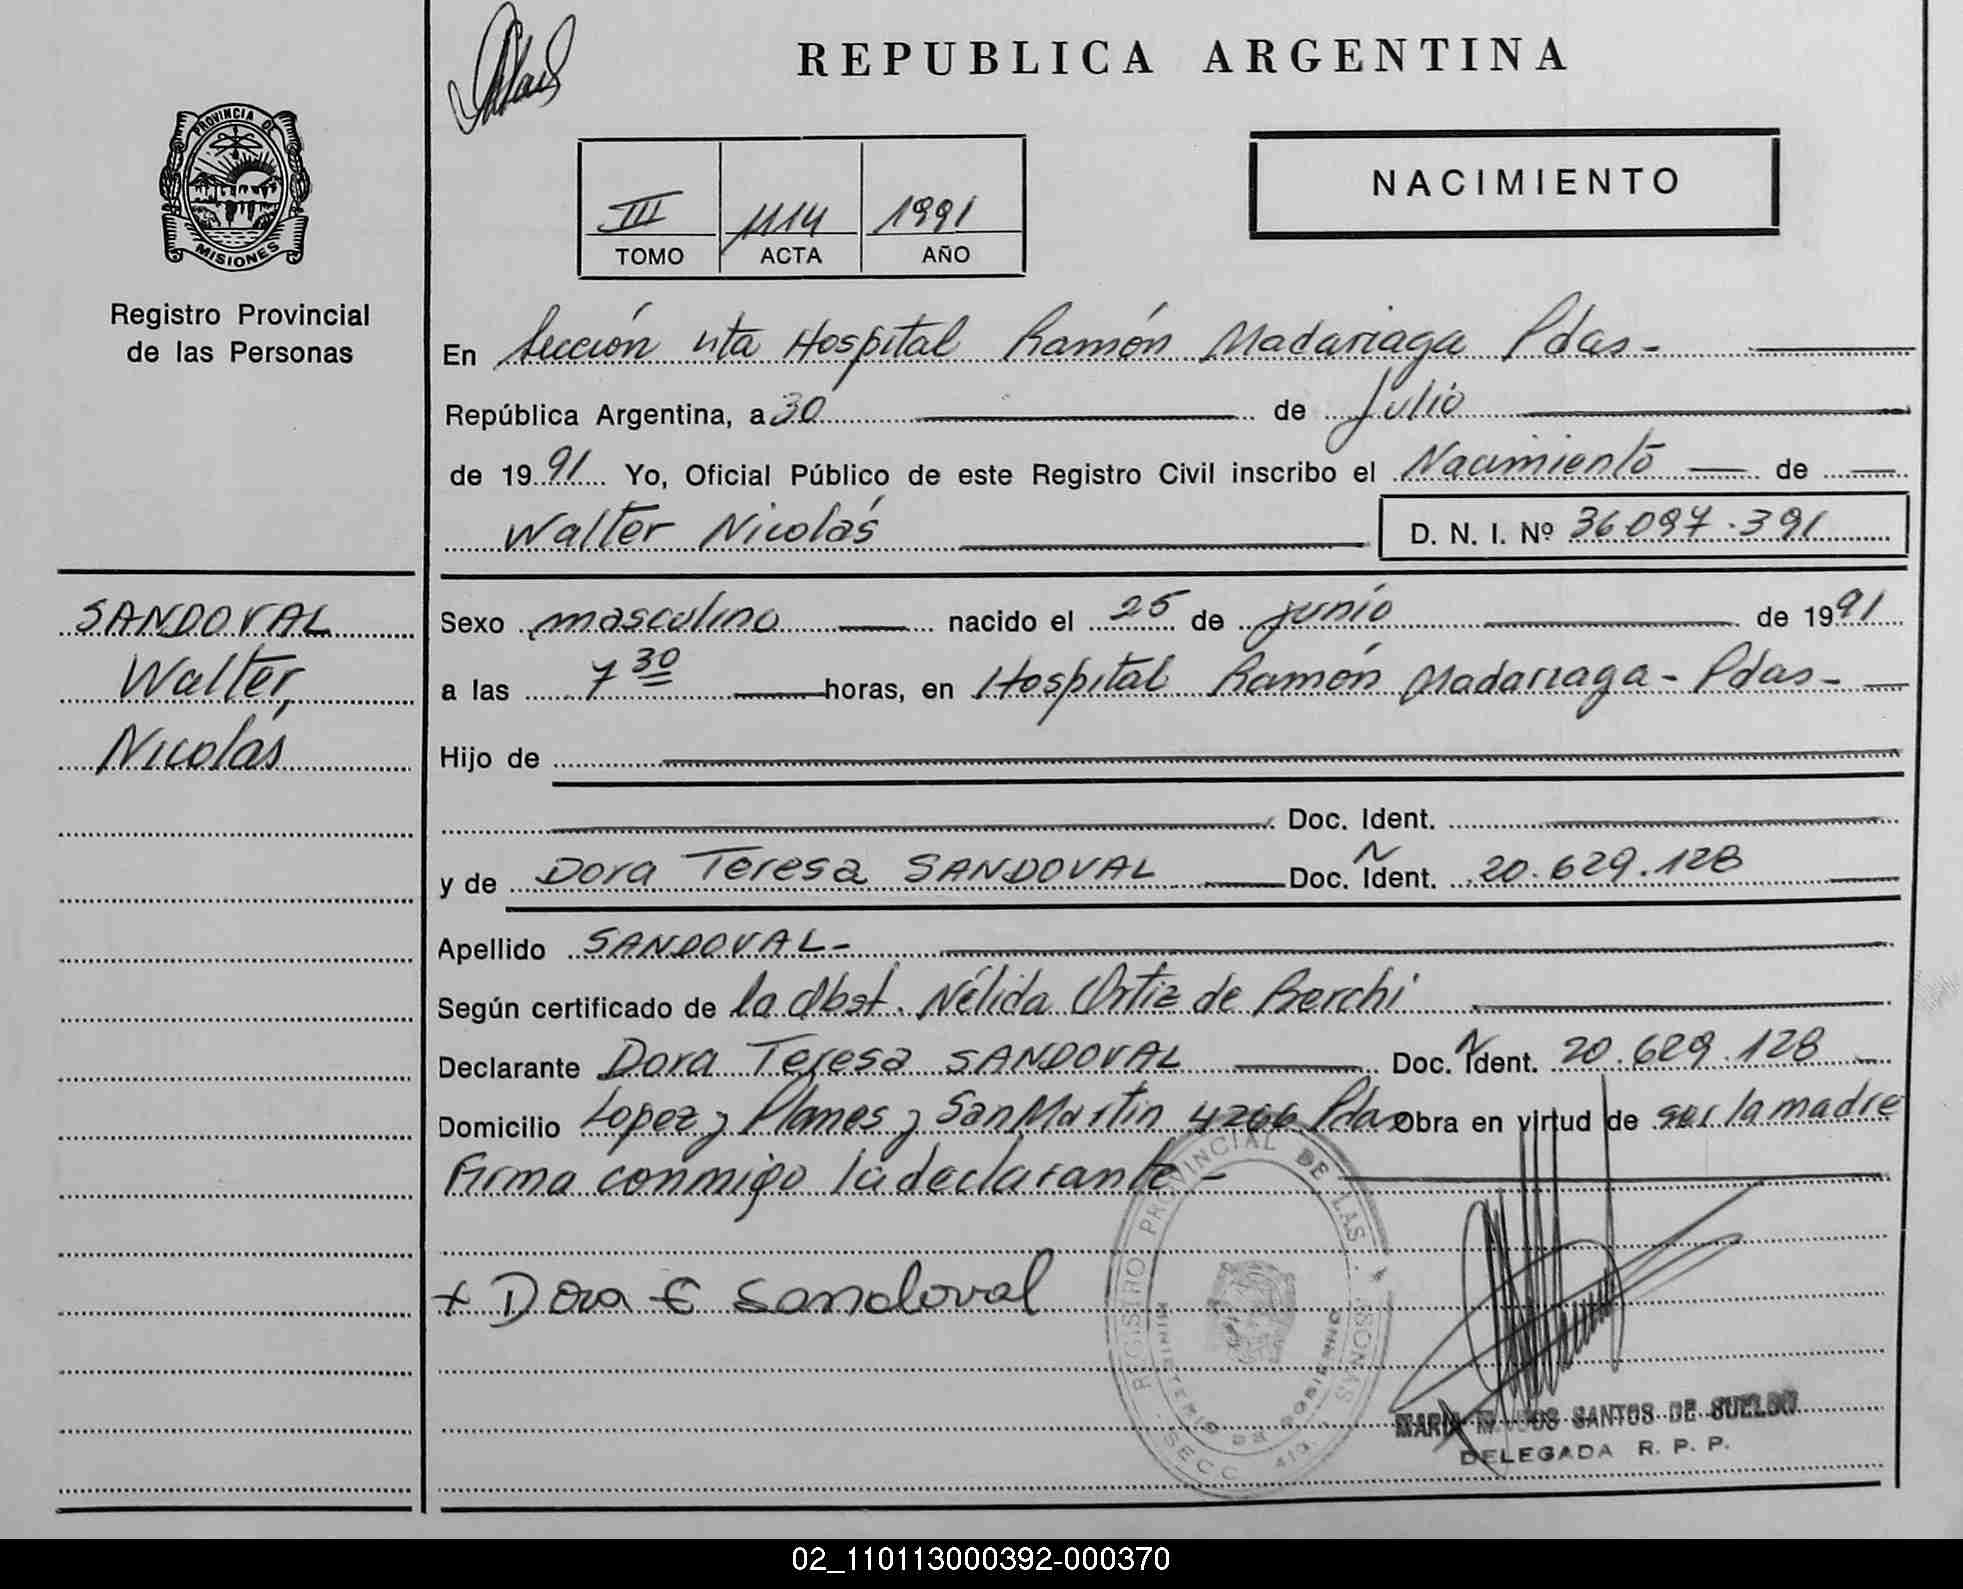 REPUBLICA ARGENTINA
PROVINCIA DE
MISIONES
Registro Provincial
de las Personas
NACIMIENTO
III 1114 1991
TOMO ACTA AÑO
En Sección 4ta Hospital Ramón Madariaga Pdas-
República Argentina, a 30 de Julio
de 1991 Yo, Oficial Público de este Registro Civil inscribo el Nacimiento de
Walter Nicolás D. N. I. Nº 36.097.391
SANDOVAL
Walter,
Nicolás
Sexo masculino nacido el 25 de junio de 1991
a las 7 30 horas, en Hospital Ramón Madariaga - Pdas-
Hijo de
Doc. Ident.
y de Dora Teresa SANDOVAL Doc. Ident. 20.629.128
Apellido SANDOVAL-
Según certificado de la Obst. Nélida Ortiz de Berchi
Declarante Dora Teresa SANDOVAL Doc. Ident. 20.629.128
Domicilio Lopez y Planes y San Martin 4266 Pdas Obra en virtud de ser la madre
Firma conmigo la declarante-
+ Dora Sandoval
REGISTRO PROVINCIAL DE LAS PERSONAS
MINISTERIO DE GOBIERNO
SECC. 4ta.
MARIA M. DOS SANTOS DE SUELDO
DELEGADA R. P. P.
02_110113000392-000370